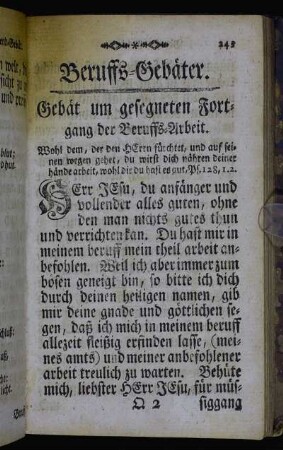 242
Beruffs-Gebäter.
Gebät um gesegneten Fort-
gang der Beruffs-Arbeit.
Wohl dem, der den HErrn fürchtet, und auf sei-
nen wegen gehet, du wirst dich nähren deiner
hände arbeit, wohl dir du hast es gut, Ps. 128, 1. 2.
HErr JEsu, du anfänger und
vollender alles guten, ohne
den man nichts gutes thun
und verrichten kan. Du hast mir in
meinem beruff mein theil arbeit an-
befohlen. Weil ich aber immer zum
bösen geneigt bin, so bitte ich dich
durch deinen heiligen namen, gib
mir deine gnade und göttlichen se-
gen, daß ich mich in meinem beruff
allezeit fleißig erfinden lasse, (mei-
nes amts) und meiner anbefohlener
arbeit treulich zu warten. Behüte
mich, liebster HErr JEsu, für müs-
Q 2 siggang